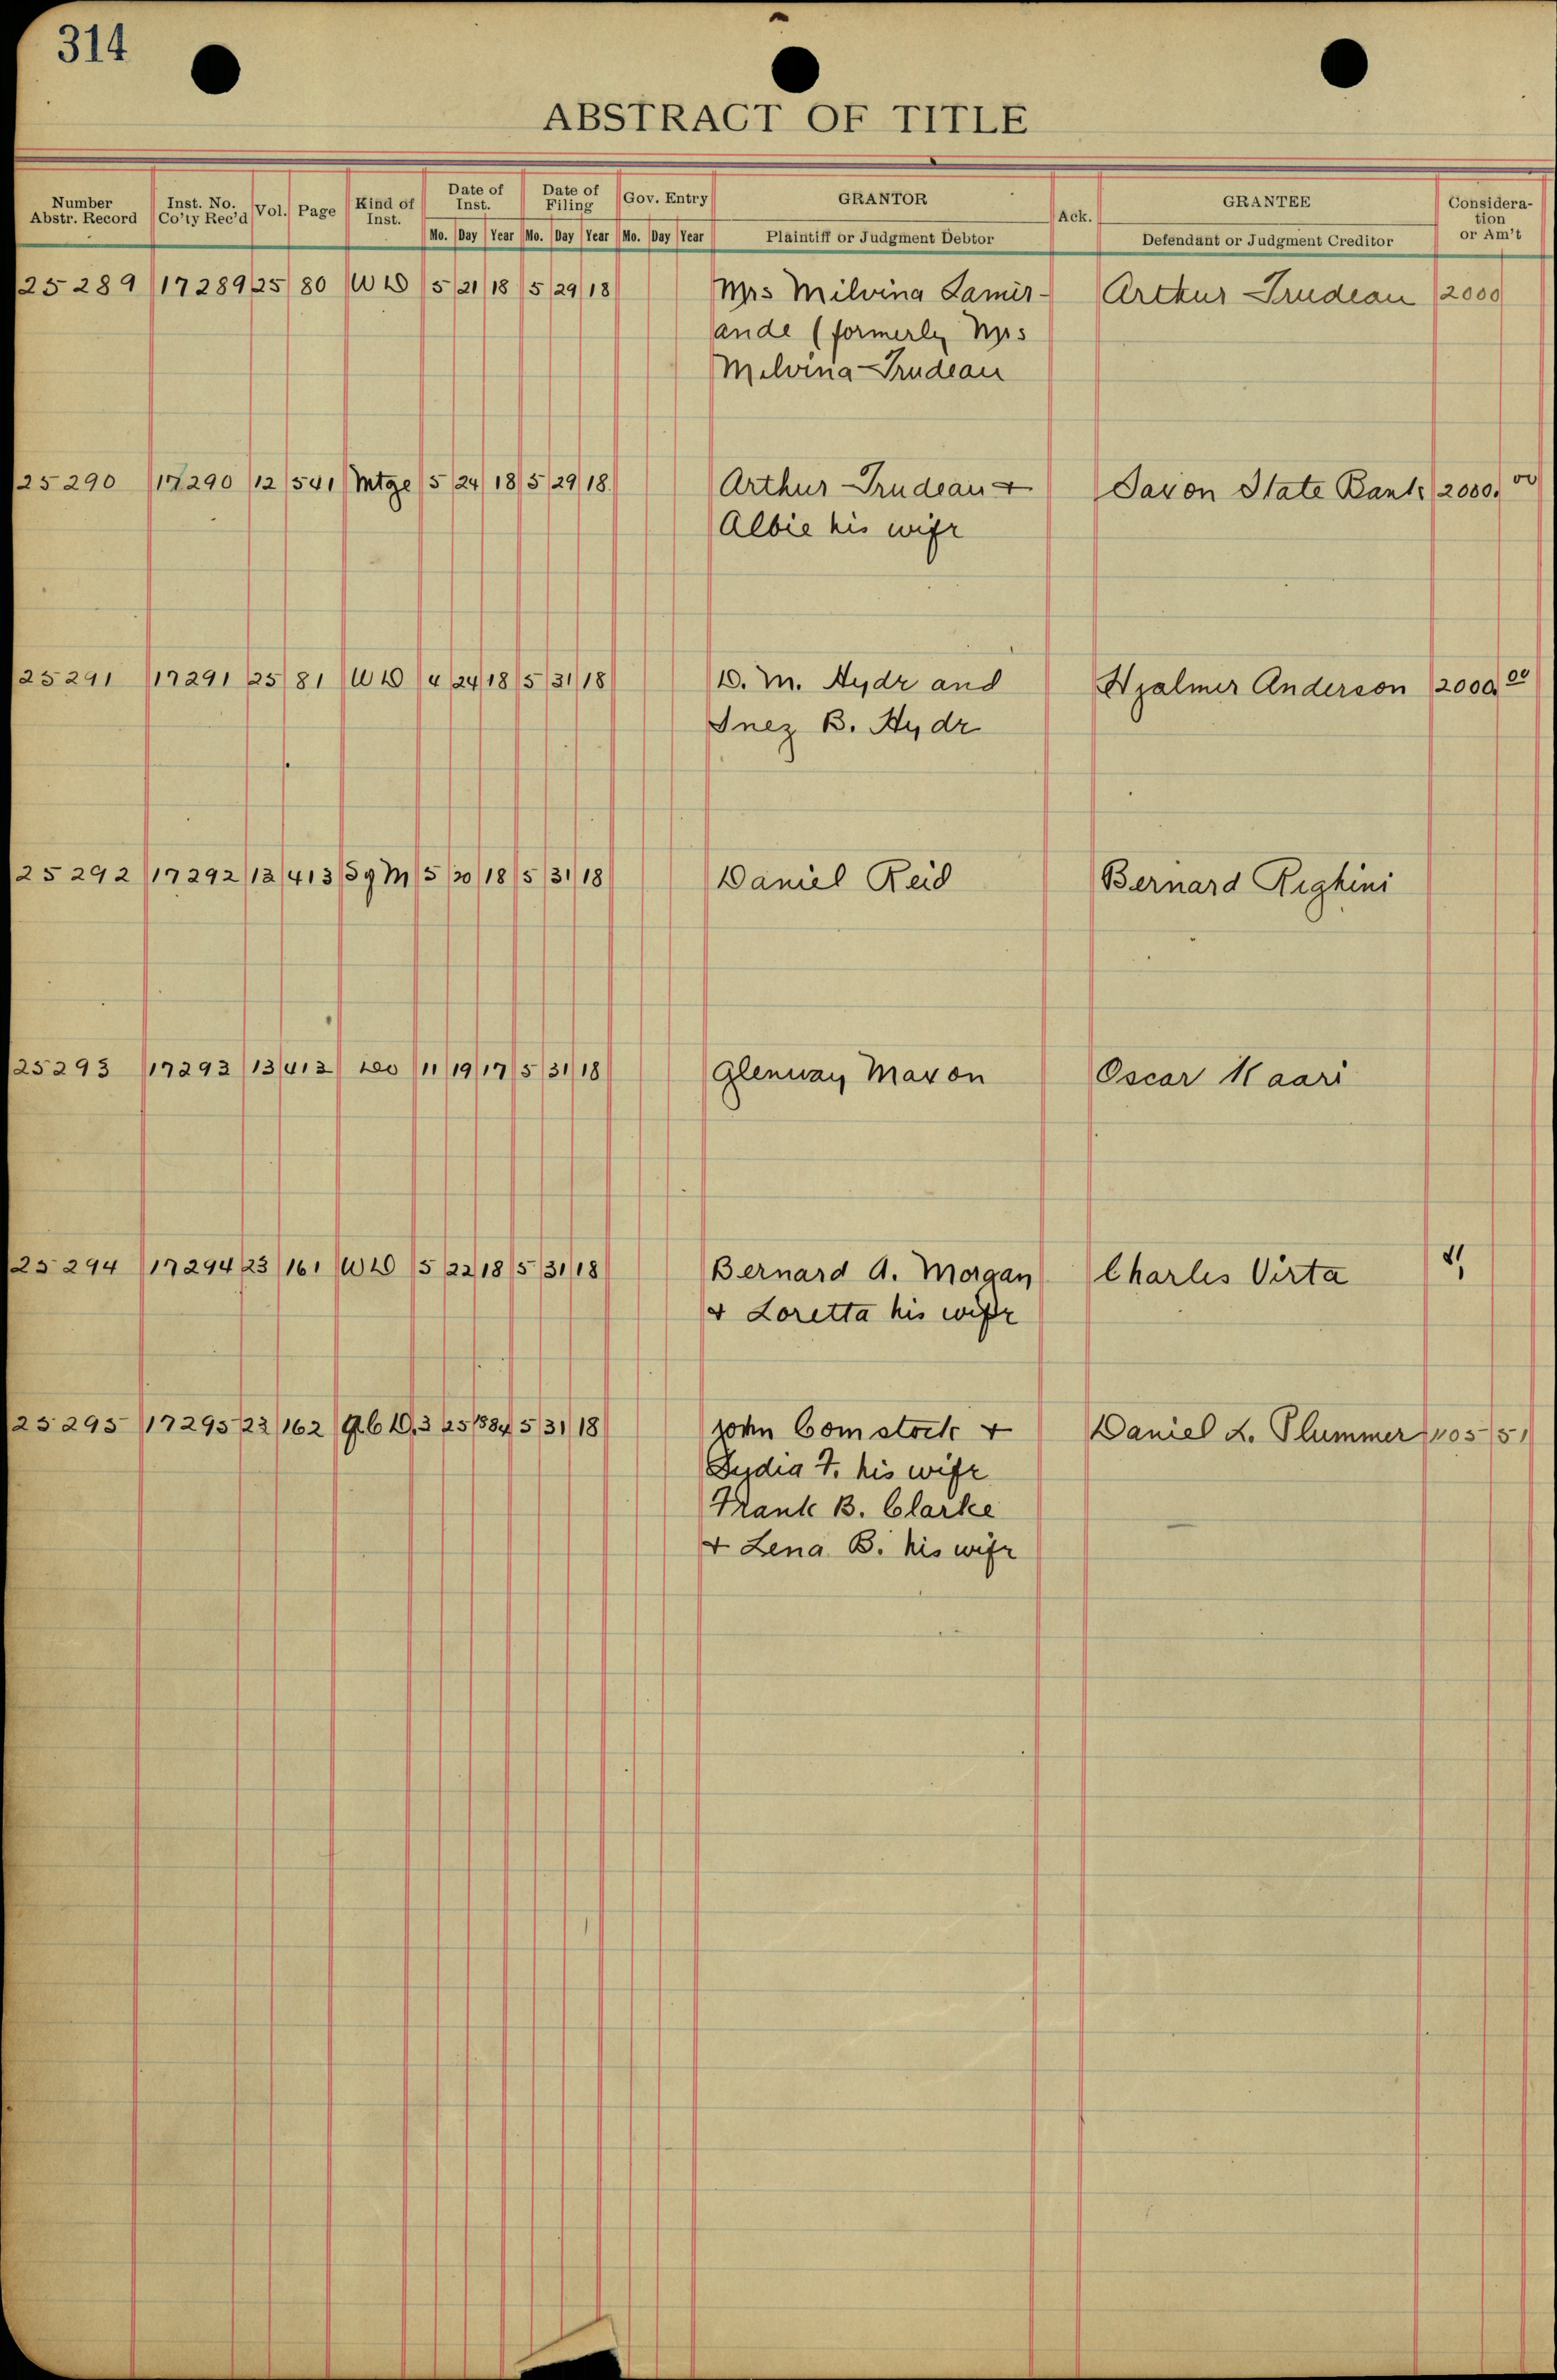 314
ABSTRACT OF TITLE
Number Abstr. Record Inst. No. Co'ty Rec'd Vol. Page Kind of Inst. Date of Inst. Date of Filing Gov. Entry GRANTOR Ack. GRANTEE Consideration or Am't
Mo. Day Year Mo. Day Year Mo. Day Year Plaintiff or Judgment Debtor Defendant or Judgment Creditor
25289 17289 25 80 WD 5 21 18 5 29 18 Mrs Milvina Lamir- Arthur Trudeau 2000
ande (formerly Mrs
Melvina Trudeau
25290 17290 12 541 Mtge 5 24 18 5 29 18 Arthur Trudeau + Saxon State Bank 2000.00
Albie his wife
25291 17291 25 81 WD 4 24 18 5 31 18 D. M. Hyde and Hjalmer Anderson 2000.00
Inez B. Hyde
25292 17292 13 413 Sg M 5 20 18 5 31 18 Daniel Reid Bernard Righini
25293 17293 13 412 Do 11 19 17 5 31 18 Glenway Maxon Oscar Kaari
25294 17294 23 161 WD 5 22 18 5 31 18 Bernard A. Morgan Charles Virta
+ Loretta his wife
25295 17295 23 162 Q.C.D. 3 25 1884 5 31 18 John Comstock + Daniel L. Plummer 1105 51
Lydia F. his wife
Frank B. Clarke
+ Lena B. his wife